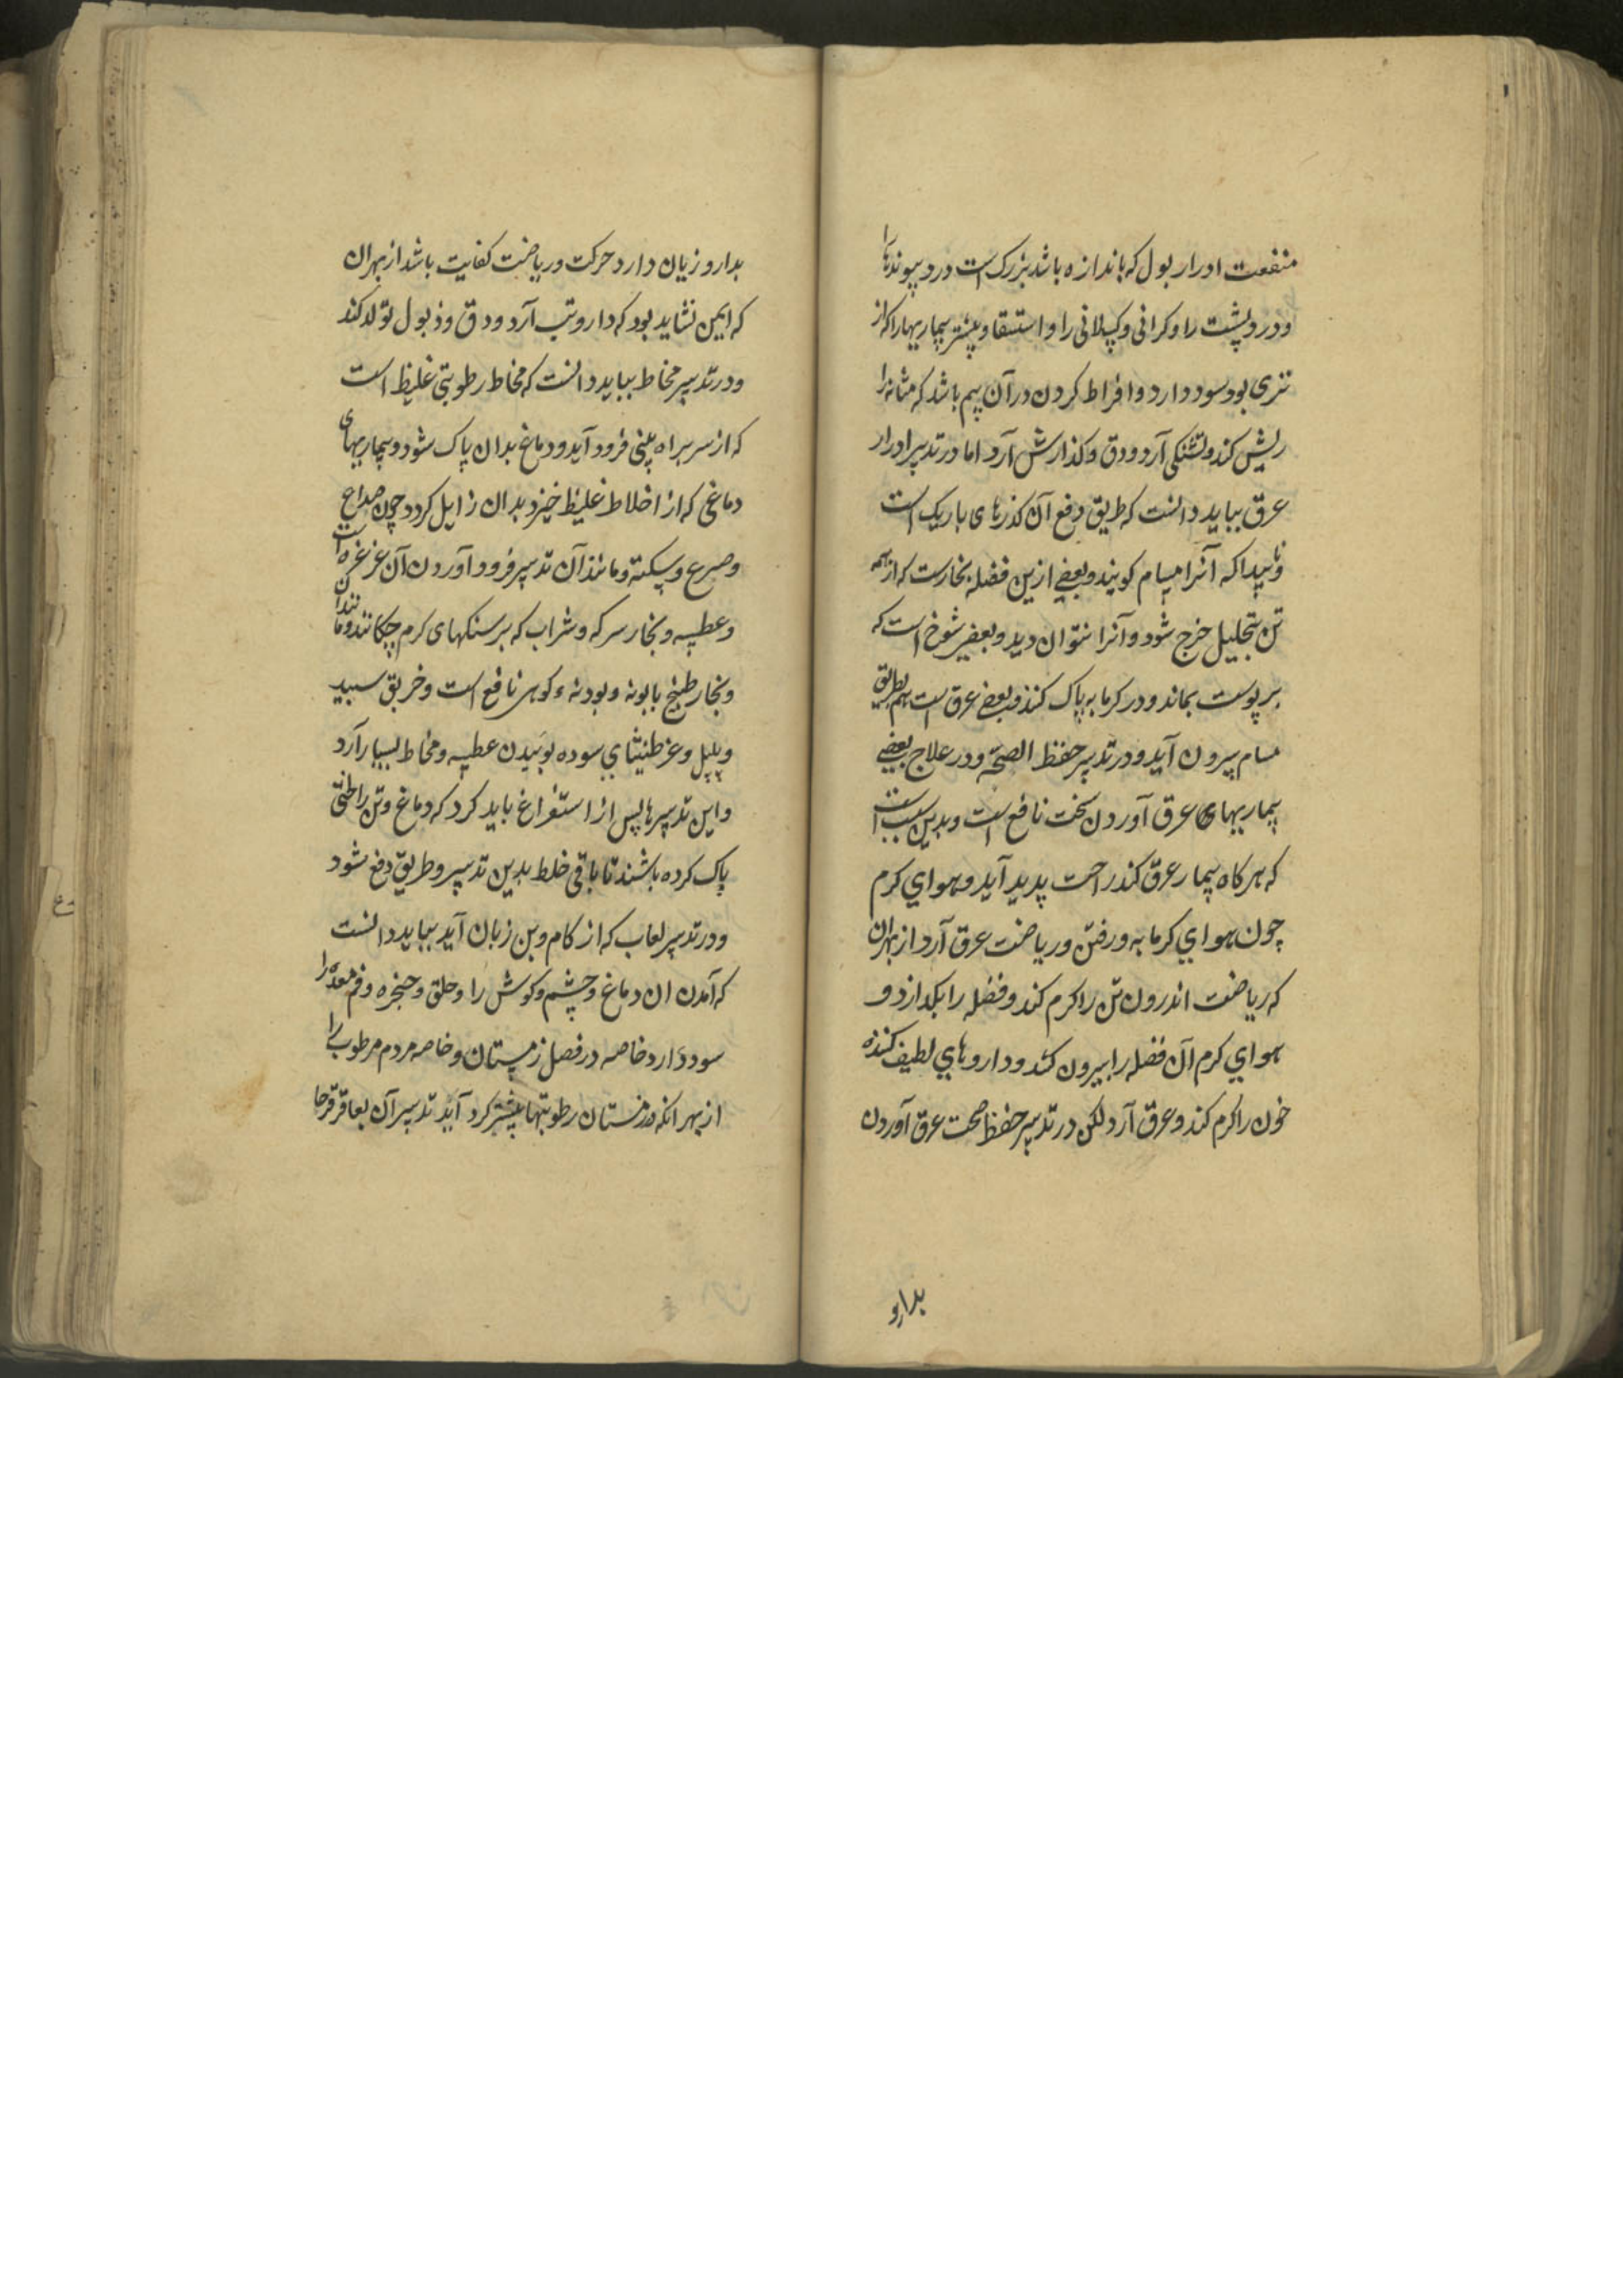 منفعت ادرار بول که باندازه باشد بزرک است درد پیوندها را
و درد پشت را و کرانی و کسلانی را و استسقا و بیشتر بیماریها را که از
تری بود سود دارد و افراط کردن در آن بیم باشد که مثانه را
ریش کند و تشنکی آرد و دق و کذارش آرد اما در تدبیر ادرار
عرق بباید دانست که طریق دفع آن کذرهای باریک است
و ناپیدا که آنرا مسام کویند و بعضی ازین فضله بخارست که از همه
تن بتحلیل خرج شود و آنرا نتوان دید و بعضی شوخ است که
بر پوست بماند و در کرمابه پاک کنند و بعضی عرق است هم بطریق
مسام بیرون آید و در تدبیر حفظ الصحة و در علاج بعضی
بیماریهای عرق آوردن سخت نافع است و بدین سبب است
که هر کاه بیمار عرق کند راحت پدید آید و هوای کرم
چون هوای کرمابه و رفتن و ریاضت عرق آرد از بهر ان
که ریاضت اندرون تن را کرم کند و فضله را بکدازد و
هوای کرم آن فضله را بیرون کشد و داروهای لطیف کننده
خون را کرم کند و عرق آرد لکن در تدبیر حفظ صحت عرق آوردن
بدارو
بدارو زیان دارد حرکت و ریاضت کفایت باشد از بهر ان
که ایمن نشاید بود که دارو تب آرد و دق و ذبول تولد کند
و در تدبیر مخاط بباید دانست که مخاط رطوبتی غلیظ است
که از سر براه بینی فرود آید و دماغ بدان پاک شود و بیماریهای
دماغی که از اخلاط غلیظ خیزد بدان زایل کردد چون صداع
و صرع و سکته و مانند آن تدبیر فرود آوردن آن غرغره است
و عطسه و بخار سرکه و شراب که بر سنکهای کرم چکانند و مانند آن
و بخار طبیخ بابونه و بودنه ء کوهی نافع است و خربق سبید
و پلپل و عرطنیثای سوده بوئیدن عطسه و مخاط بسیار آرد
و این تدبیرها پس از استفراغ باید کرد که دماغ و تن را لختی
پاک کرده باشند تا باقی خلط بدین تدبیر و طریق دفع شود
و در تدبیر لعاب که از کام و بن زبان آید بباید دانست
که آمدن ان دماغ و چشم و کوش را و حلق و حنجره و فم معده را
سود دارد خاصه در فصل زمستان و خاصه مردم مرطوب را
از بهر انکه در زمستان رطوبتها بیشتر کرد آید تدبیر آن بعاقرقرحا